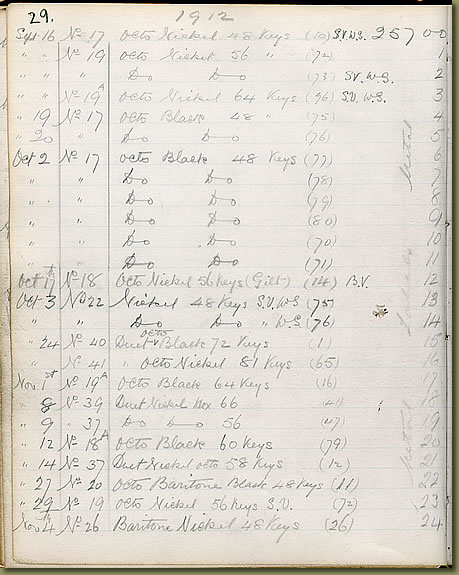 29. 1912
Sept 16 No 17 Octo Nickel 48 Keys (12) S.V.W.S. 257 00
" No 19 Octo Nickel 56 " (72) 1
" " Do Do (73) SV. W.S. 2
" No 19A Octo Nickel 64 Keys (96) S.V. W.S. 3
" 19 No 17 Octo Black 48 " (75) 4
" 20 " Do Do (76) 5
Oct 2 No 17 Octo Black 48 Keys (77) 6
" " Do Do (78) 7
" " Do Do (79) 8
" " Do Do (80) 9
" " Do Do (70) 10
" " Do Do (71) 11
Oct 1st No 18 Octo Nickel 56 Keys (Gilt) (14) B.V. 12
Oct 3 No 22 Nickel 48 Keys S.V. W.S (75) 13
" " Do Do " W.S (76) 14
" 24 No 40 Duet octo Black 72 Keys (1) 15
" No 41 " Octo Nickel 81 Keys (65) 16
Nov 1st No 19A Octo Black 64 Keys (16) 17
" 8 No 39 Duet Nickel Box 66 (41) 18
" 9 " 37 Do Do 56 (47) 19
" 12 No 18A Octo Black 60 Keys (79) 20
" 14 No 37 Duet Nickel octo 58 Keys (12) 21
" 27 No 20 Octo Baritone Black 48 Keys (11) 22
" 29 No 19 Octo Nickel 56 Keys S.V. (72) 23
Nov 4th No 26 Baritone Nickel 48 Keys (26) 24